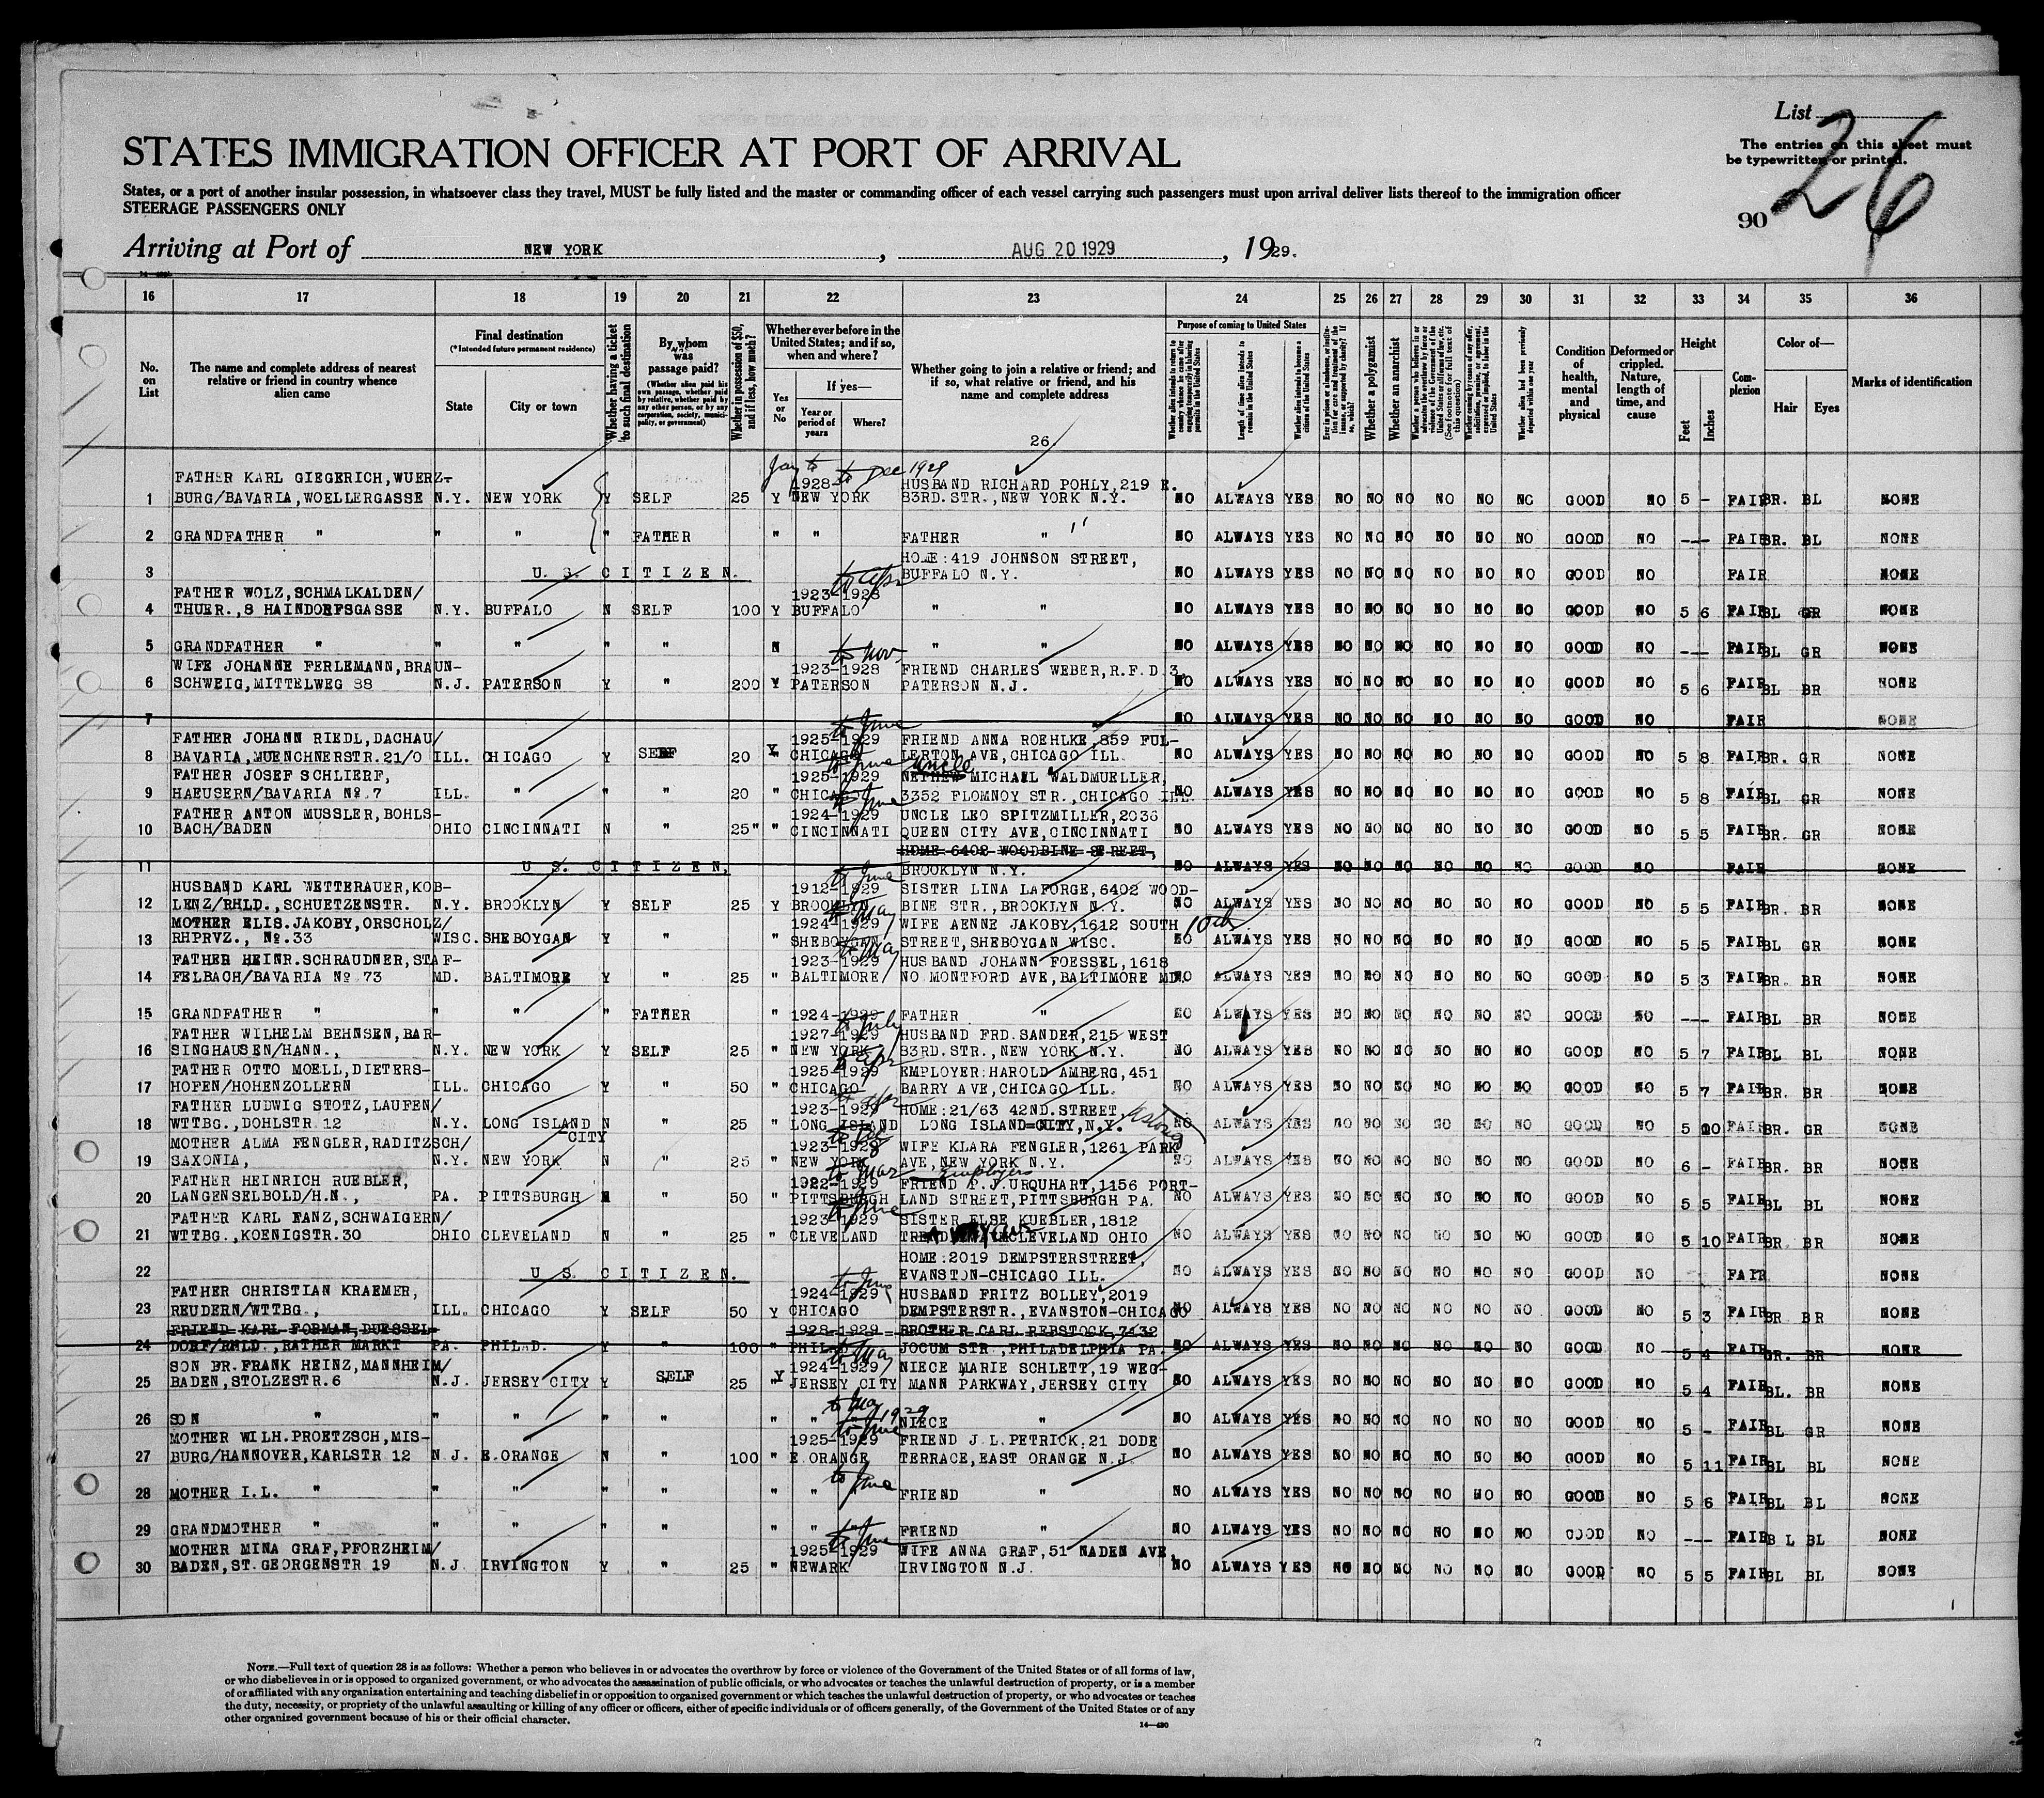 List
26
The entries on this sheet must
be typewritten or printed.
90
STATES IMMIGRATION OFFICER AT PORT OF ARRIVAL
States, or a port of another insular possession, in whatsoever class they travel, MUST be fully listed and the master or commanding officer of each vessel carrying such passengers must upon arrival deliver lists thereof to the immigration officer
STEERAGE PASSENGERS ONLY
Arriving at Port of NEW YORK, AUG 20 1929, 1929.
16 17 18 19 20 21 22 23 24 25 26 27 28 29 30 31 32 33 34 35 36
No. on List
The name and complete address of nearest relative or friend in country whence alien came
Final destination
(*Intended future permanent residence)
State
City or town
Whether having a ticket to such final destination
By whom was passage paid?
(Whether alien paid his own passage, whether paid by relative, whether paid by any other person, or by any corporation, society, municipality, or government)
Whether in possession of $50, and if less, how much?
Whether ever before in the United States; and if so, when and where?
Yes or No
If yes—
Year or period of years
Where?
Whether going to join a relative or friend; and if so, what relative or friend, and his name and complete address
26.
Purpose of coming to United States
Length of time alien intends to remain in the United States
Whether alien intends to become a citizen of the United States
Whether a polygamist
Whether an anarchist
Condition of health, mental and physical
Deformed or crippled. Nature, length of time, and cause
Height
Feet
Inches
Complexion
Color of—
Hair
Eyes
Marks of identification
FATHER KARL GIEGERICH, WUERZ- 1928- to Dec 1929 HUSBAND RICHARD POHLY, 219 E.
1 BURG/BAVARIA, WOELLERGASSE N.Y. NEW YORK Y SELF 25 Y NEW YORK 83RD. STR., NEW YORK N.Y. NO ALWAYS YES NO NO NO NO NO NO GOOD NO 5 - FAIR BR. BL NONE
2 GRANDFATHER " " " " FATHER " " FATHER " NO ALWAYS YES NO NO NO NO NO NO GOOD NO --- FAIR BR. BL NONE
HOME: 419 JOHNSON STREET,
3 U. S. CITIZEN. BUFFALO N.Y. NO ALWAYS YES NO NO NO NO NO NO GOOD NO FAIR NONE
FATHER WOLZ, SCHMALKALDEN/ 1923-1928
4 THUER., 8 HAINDORFSGASSE N.Y. BUFFALO N SELF 100 Y BUFFALO " " NO ALWAYS YES NO NO NO NO NO NO GOOD NO 5 6 FAIR BL GR NONE
5 GRANDFATHER " " " " " N " " NO ALWAYS YES NO NO NO NO NO NO GOOD NO --- FAIR BL GR NONE
WIFE JOHANNE FERLEMANN, BRAUN- to Nov 1923-1928 FRIEND CHARLES WEBER, R.F.D.3,
6 SCHWEIG, MITTELWEG 88 N.J. PATERSON Y " 200 Y PATERSON PATERSON N.J. NO ALWAYS YES NO NO NO NO NO NO GOOD NO 5 6 FAIR BL BR NONE
7 NO ALWAYS YES NO NO NO NO NO NO GOOD NO FAIR NONE
FATHER JOHANN RIEDL, DACHAU/ to June 1925-1929 FRIEND ANNA ROEHLKE, 859 FUL-
8 BAVARIA, MUENCHNERSTR. 21/0 ILL. CHICAGO Y SELF 20 Y CHICAGO LERTON AVE, CHICAGO ILL. NO ALWAYS YES NO NO NO NO NO NO GOOD NO 5 8 FAIR BR. GR NONE
FATHER JOSEF SCHLIERF, to June 1925-1929 uncle NEPHEW MICHAEL WALDMUELLER,
9 HAEUSERN/BAVARIA No. 7 ILL. " " " 20 " CHICAGO 3352 FLOMNOY STR., CHICAGO ILL. NO ALWAYS YES NO NO NO NO NO NO GOOD NO 5 8 FAIR BL GR NONE
FATHER ANTON MUSSLER, BOHLS- to June 1924-1929 UNCLE LEO SPITZMILLER, 2036
10 BACH/BADEN OHIO CINCINNATI N " 25" " CINCINNATI QUEEN CITY AVE, CINCINNATI NO ALWAYS YES NO NO NO NO NO NO GOOD NO 5 5 FAIR BR. GR NONE
HOME 6402 WOODBINE STREET,
11 U. S. CITIZEN. BROOKLYN N.Y. NO ALWAYS YES NO NO NO NO NO NO GOOD NO FAIR NONE
HUSBAND KARL WETTERAUER, KOB- to June 1912-1929 SISTER LINA LAFORGE, 6402 WOOD-
12 LENZ/RHLD., SCHUETZENSTR. N.Y. BROOKLYN Y SELF 25 Y BROOKLYN BINE STR., BROOKLYN N.Y. NO ALWAYS YES NO NO NO NO NO NO GOOD NO 5 5 FAIR BR. BR NONE
MOTHER ELIS. JAKOBY, ORSCHOLZ/ to May 1924-1929 WIFE AENNE JAKOBY, 1612 SOUTH 10th
13 RHPRVZ., No. 33 WISC. SHEBOYGAN Y " " SHEBOYGAN STREET, SHEBOYGAN WISC. NO ALWAYS YES NO NO NO NO NO NO GOOD NO 5 5 FAIR BL GR NONE
FATHER HEINR. SCHRAUDNER, STAF- to May 1923-1929 HUSBAND JOHANN FOESSEL, 1618
14 FELBACH/BAVARIA No 73 MD. BALTIMORE Y " 25 " BALTIMORE NO MONTFORD AVE, BALTIMORE MD. NO ALWAYS YES NO NO NO NO NO NO GOOD NO 5 3 FAIR BR. BR NONE
15 GRANDFATHER " " " " FATHER " 1924-1929 FATHER " NO ALWAYS YES NO NO NO NO NO NO GOOD NO --- FAIR BL BR NONE
FATHER WILHELM BEHNSEN, BAR- to July 1927-1929 HUSBAND FRD. SANDER, 215 WEST
16 SINGHAUSEN/HANN., N.Y. NEW YORK Y SELF 25 " NEW YORK 83RD. STR., NEW YORK N.Y. NO ALWAYS YES NO NO NO NO NO NO GOOD NO 5 7 FAIR BL BL NONE
FATHER OTTO MOELL, DIETERS- to Apr 1925-1929 EMPLOYER: HAROLD AMBERG, 451
17 HOFEN/HOHENZOLLERN ILL. CHICAGO Y " 50 " CHICAGO BARRY AVE, CHICAGO ILL. NO ALWAYS YES NO NO NO NO NO NO GOOD NO 5 7 FAIR BR BR NONE
FATHER LUDWIG STOTZ, LAUFEN/ to Apr 1923-1929 HOME: 21/63 42ND. STREET, Astoria
18 WTTBG., DOHLSTR 12 N.Y. LONG ISLAND CITY N " 25 " LONG ISLAND LONG ISLAND CITY, N.Y. NO ALWAYS YES NO NO NO NO NO NO GOOD NO 5 10 FAIR BR. GR NONE
MOTHER ALMA FENGLER, RADITZSCH/ 1923-1928 WIFE KLARA FENGLER, 1261 PARK
19 SAXONIA, N.Y. NEW YORK N " 25 " NEW YORK AVE, NEW YORK N.Y. NO ALWAYS YES NO NO NO NO NO NO GOOD NO 6 - FAIR BR. BR NONE
FATHER HEINRICH RUEBLER, to Mar 1922-1929 Employer FRIEND P. J. URQUHART, 1156 PORT-
20 LANGENSELBOLD/H.N., PA. PITTSBURGH N " 50 " PITTSBURGH LAND STREET, PITTSBURGH PA. NO ALWAYS YES NO NO NO NO NO NO GOOD NO 5 5 FAIR BL BL NONE
FATHER KARL FANZ, SCHWAIGERN/ to June 1923-1929 SISTER ELSE KUEBLER, 1812
21 WTTBG., KOENIGSTR. 30 OHIO CLEVELAND N " 25 " CLEVELAND CLEVELAND OHIO NO ALWAYS YES NO NO NO NO NO NO GOOD NO 5 10 FAIR BR. BR NONE
HOME: 2019 DEMPSTERSTREET,
22 U. S. CITIZEN. EVANSTON-CHICAGO ILL. NO ALWAYS YES NO NO NO NO NO NO GOOD NO FAIR NONE
FATHER CHRISTIAN KRAEMER, 1924-1929 HUSBAND FRITZ BOLLEY, 2019
23 REUDERN/WTTBG., ILL. CHICAGO Y SELF 50 Y CHICAGO DEMPSTERSTR., EVANSTON-CHICAGO NO ALWAYS YES NO NO NO NO NO NO GOOD NO 5 3 FAIR BR BR NONE
FRIEND KARL FORMAN, DUESSEL- 1928-1929 BROTHER CARL REBSTOCK, 7132
24 DORF/RHLD., RATHER MARKT PA. PHILAD. Y " 100 " PHILAD JOCUM STR., PHILADELPHIA PA. NO ALWAYS YES NO NO NO NO NO NO GOOD NO 5 4 FAIR GR. BR NONE
SON BR. FRANK HEINZ, MANNHEIM/ to May 1924-1929 NIECE MARIE SCHLETT, 19 WEG-
25 BADEN, STOLZESTR. 6 N.J. JERSEY CITY Y SELF 25 Y JERSEY CITY MANN PARKWAY, JERSEY CITY NO ALWAYS YES NO NO NO NO NO NO GOOD NO 5 4 FAIR BL. BR NONE
26 SON " " " " " " " to May 1929 NIECE " NO ALWAYS YES NO NO NO NO NO NO GOOD NO 5 - FAIR BL GR NONE
MOTHER WILH. PROETZSCH, MIS- to June 1925-1929 FRIEND J.L. PETRICK, 21 DODE
27 BURG/HANNOVER, KARLSTR 12 N.J. E.ORANGE N " 100 " E.ORANGE TERRACE, EAST ORANGE N.J. NO ALWAYS YES NO NO NO NO NO NO GOOD NO 5 11 FAIR BL BL NONE
28 MOTHER I.L. " " " " " " " to June FRIEND " NO ALWAYS YES NO NO NO NO NO NO GOOD NO 5 6 FAIR BL BL NONE
29 GRANDMOTHER " " " " " " " " FRIEND " NO ALWAYS YES NO NO NO NO NO NO GOOD NO --- FAIR BL BL NONE
MOTHER MINA GRAF, PFORZHEIM/ to June 1925-1929 WIFE ANNA GRAF, 51 NADEN AVE,
30 BADEN, ST. GEORGENSTR 19 N.J. IRVINGTON Y " 25 " NEWARK IRVINGTON N.J. NO ALWAYS YES NO NO NO NO NO NO GOOD NO 5 5 FAIR BL BL NONE
NOTE.—Full text of question 28 is as follows: Whether a person who believes in or advocates the overthrow by force or violence of the Government of the United States or of all forms of law,
or who disbelieves in or is opposed to organized government, or who advocates the assassination of public officials, or who advocates or teaches the unlawful destruction of property, or is a member
of or affiliated with any organization entertaining and teaching disbelief in or opposition to organized government or which teaches the unlawful destruction of property, or who advocates or teaches
the duty, necessity, or propriety of the unlawful assaulting or killing of any officer or officers, either of specific individuals or of officers generally, of the Government of the United States or of any
other organized government because of his or their official character.
14—430